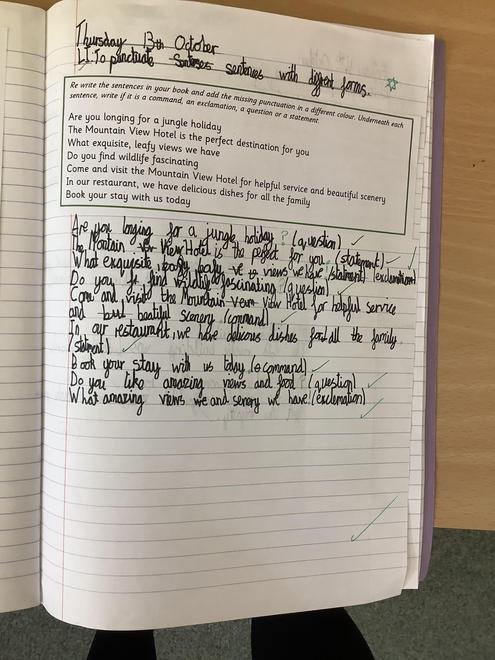 Thursday 13th October
L.I: To punctuate sentences with diffrent forms.
Re write the sentences in your book and add the missing punctuation in a different colour. Underneath each
sentence, write if it is a command, an exclamation, a question or a statement.
Are you longing for a jungle holiday
The Mountain View Hotel is the perfect destination for you
What exquisite, leafy views we have
Do you find wildlife fascinating
Come and visit the Mountain View Hotel for helpful service and beautiful scenery
In our restaurant, we have delicious dishes for all the family
Book your stay with us today
Are you longing for a jungle holiday? (question)
the Montain View Hotel is the perfect for you. (statement)
What exquisite, leafy views we have! (statment) (exclamation)
Do you find wildlife fascinating (question)
Come and visit the Mountain View Hotel for helpful service
and beatiful scenery (command)
In our restaurant, we have delicous dishes for all the family.
(statment)
Book your stay with us today. (command)
Do you like amazing views and food? (question)
What amazing views we and senery we have! (exclemation)